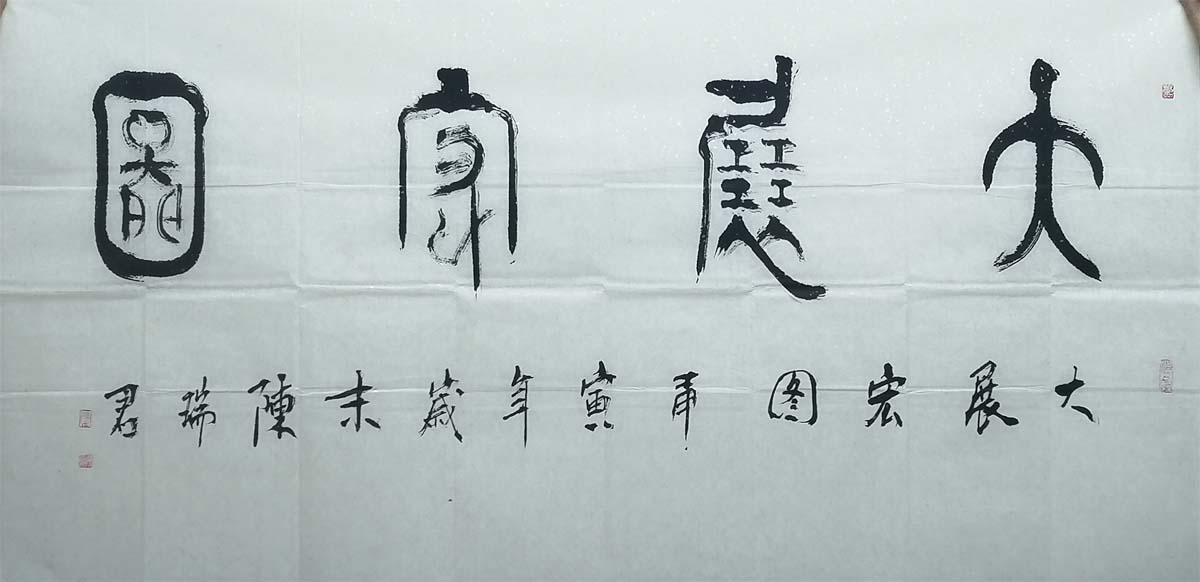 大展宏圖
大展宏图庚寅年歲末陳瑞君